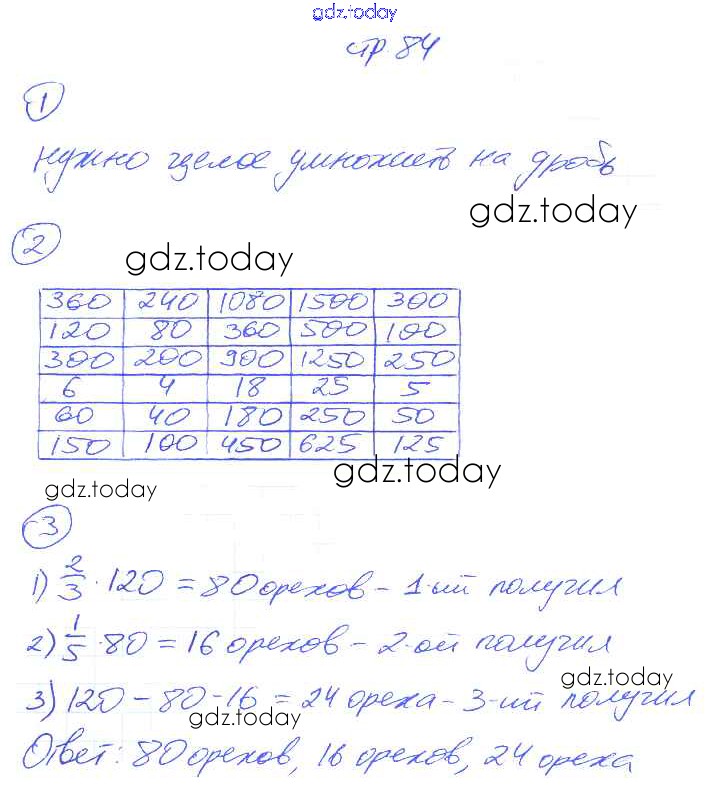 gdz.today
стр. 84
1
нужно целое умножить на дробь
gdz.today
2
gdz.today
360 240 1080 1500 300
120 80 360 500 100
300 200 900 1250 250
6 4 18 25 5
60 40 180 250 50
150 100 450 625 125
gdz.today
gdz.today
3
1) 2/3 · 120 = 80 орехов – 1-ый получил
2) 1/5 · 80 = 16 орехов – 2-ой получил
gdz.today
3) 120 – 80 - 16 = 24 ореха – 3-ий получил
gdz.today
Ответ: 80 орехов, 16 орехов, 24 ореха